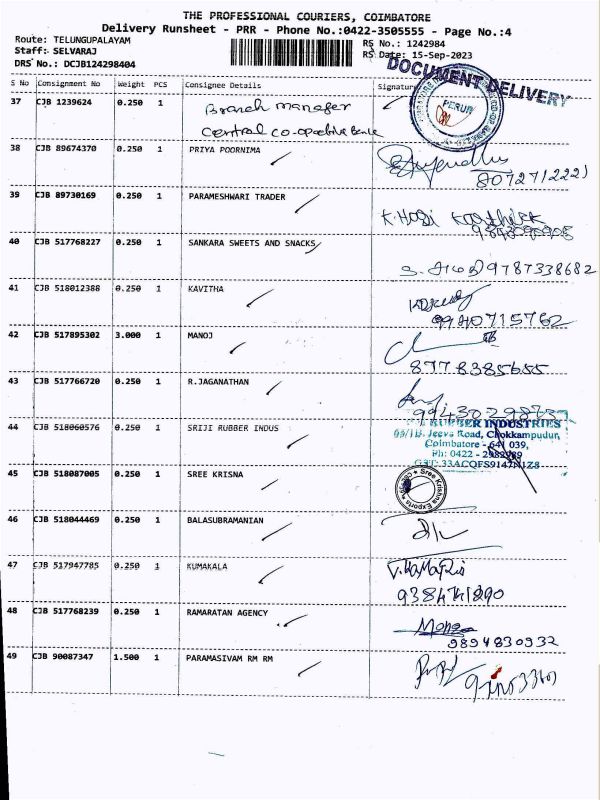 THE PROFESSIONAL COURIERS, COIMBATORE
Delivery Runsheet - PRR - Phone No.:0422-3505555 - Page No.:4
Route: TELUNGUPALAYAM
RS No.: 1242984
Staff: SELVARAJ
RS Date: 15-Sep-2023
DRS No.: DCJB124298404
DOCUMENT DELIVERY
S No Consignment No Weight PCS Consignee Details Signature
37 CJB 1239624 0.250 1 Branch manager
central co-operative Bank
PERUR
38 CJB 89674370 0.250 1 PRIYA POORNIMA
8072712221
39 CJB 89730169 0.250 1 PARAMESHWARI TRADER
40 CJB 517768227 0.250 1 SANKARA SWEETS AND SNACKS
9787338682
41 CJB 518012388 0.250 1 KAVITHA
9940715762
42 CJB 517895302 3.000 1 MANOJ
8778385655
43 CJB 517766720 0.250 1 R.JAGANATHAN
9943029873
44 CJB 518060576 0.250 1 SRIJI RUBBER INDUS
RUBBER INDUSTRIES
Jeeva Road, Chokkampudur,
Coimbatore - 641 039,
Ph: 0422 - 2982989
45 CJB 518087005 0.250 1 SREE KRISNA
Sree Krishna Exports
46 CJB 518044469 0.250 1 BALASUBRAMANIAN
47 CJB 517947785 0.250 1 KUMAKALA
48 CJB 517768239 0.250 1 RAMARATAN AGENCY
9894830932
49 CJB 90087347 1.500 1 PARAMASIVAM RM RM